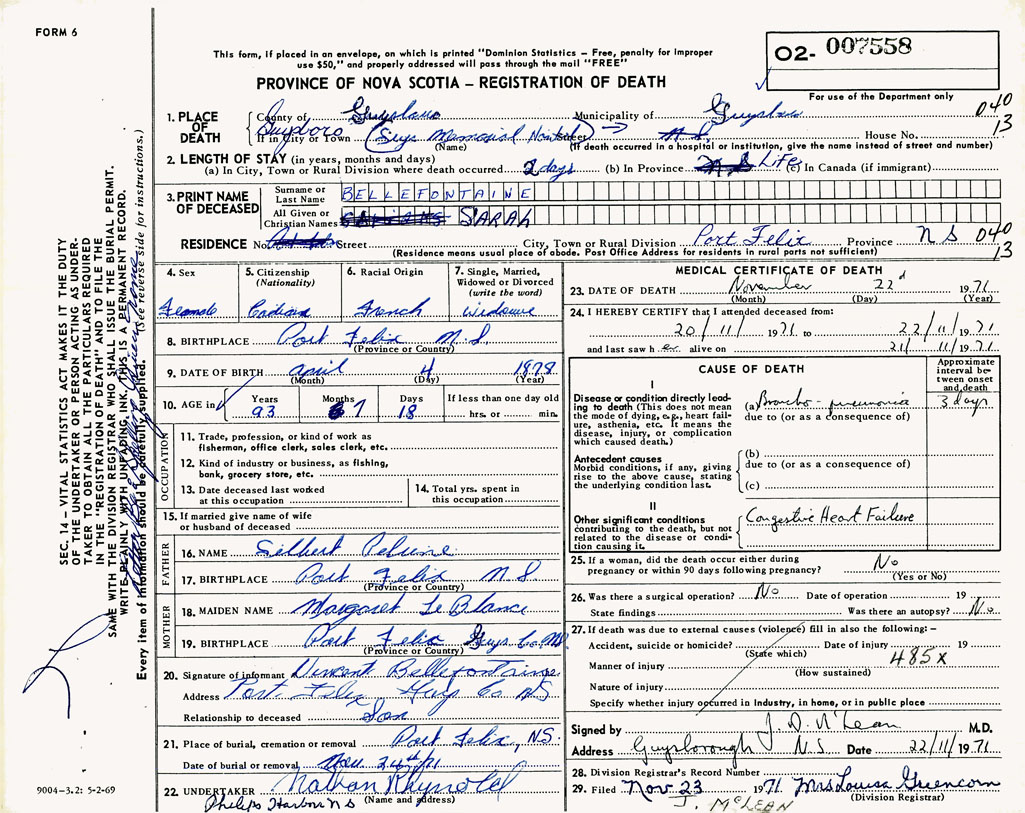 FORM 6
This form, if placed in an envelope, on which is printed "Dominion Statistics – Free, penalty for improper
use $50," and properly addressed will pass through the mail "FREE"
O2- 007558
PROVINCE OF NOVA SCOTIA – REGISTRATION OF DEATH
For use of the Department only
1. PLACE OF DEATH
County of Municipality of 040
If in City or Town (Guys Memorial House No. 13
(Name) (If death occurred in a hospital or institution, give the name instead of street and number)
2. LENGTH OF STAY (in years, months and days)
(a) In City, Town or Rural Division where death occurred 2 days (b) In Province Life (c) In Canada (if immigrant)
3. PRINT NAME OF DECEASED
Surname or Last Name BELLEFONTAINE
All Given or Christian Names SARAH
RESIDENCE No. Street City, Town or Rural Division Port Felix Province N S 040
(Residence means usual place of abode. Post Office Address for residents in rural parts not sufficient) 13
4. Sex Female
5. Citizenship (Nationality) Cadian
6. Racial Origin French
7. Single, Married, Widowed or Divorced (write the word)
8. BIRTHPLACE Port Felix N.S.
(Province or Country)
9. DATE OF BIRTH April 4 1878
(Month) (Day) (Year)
10. AGE in Years Months Days If less than one day old
93 7 18 hrs. or min.
OCCUPATION
11. Trade, profession, or kind of work as
fishermen, office clerk, sales clerk, etc.
12. Kind of industry or business, as fishing,
bank, grocery store, etc.
13. Date deceased last worked
at this occupation
14. Total yrs. spent in
this occupation
15. If married give name of wife
or husband of deceased
FATHER
16. NAME
17. BIRTHPLACE Port Felix N.S.
(Province or Country)
MOTHER
18. MAIDEN NAME Margaret Le Blanc
19. BIRTHPLACE Port Felix Guys Co. NS
(Province or Country)
20. Signature of informant Vincent Bellefontaine
Address Port Felix Guys Co NS
Relationship to deceased Son
21. Place of burial, cremation or removal Port Felix, N.S.
Date of burial or removal Nov. 24th/71
22. UNDERTAKER Nathan
Philips Harbour N S (Name and address)
MEDICAL CERTIFICATE OF DEATH
23. DATE OF DEATH November 22d 1971
(Month) (Day) (Year)
24. I HEREBY CERTIFY that I attended deceased from:
20/11/1971 to 22/11/1971
and last saw her alive on 21/11/1971
CAUSE OF DEATH
Approximate interval between onset and death
I
Disease or condition directly leading to death (This does not
mean the mode of dying, e.g., heart failure, asthenia, etc. It means the
disease, injury, or complication
which caused death.)
(a) Broncho-pneumonia 3 days
due to (or as a consequence of)
Antecedent causes
Morbid conditions, if any, giving
rise to the above cause, stating
the underlying condition last.
(b)
due to (or as a consequence of)
(c)
II
Other significant conditions
contributing to the death, but not
related to the disease or condition causing it.
Congestive Heart Failure
25. If a woman, did the death occur either during
pregnancy or within 90 days following pregnancy? No
(Yes or No)
26. Was there a surgical operation? No Date of operation 19
State findings Was there an autopsy? No
27. If death was due to external causes (violence) fill in also the following:–
Accident, suicide or homicide? Date of injury 19
(State which) 485X
Manner of injury
(How sustained)
Nature of injury
Specify whether injury occurred in industry, in home, or in public place
Signed by M.D.
Address Guysborough N.S. Date 22/11/1971
28. Division Registrar's Record Number
29. Filed Nov 23 1971 Mrs Louisa Greencorn
(Division Registrar)
J. McLEAN
SEC. 14 – VITAL STATISTICS ACT MAKES IT THE DUTY
OF THE UNDERTAKER OR PERSON ACTING AS UNDERTAKER TO OBTAIN ALL THE PARTICULARS REQUIRED
IN THE "REGISTRATION OF DEATH" AND TO FILE THE
SAME WITH THE DIVISION REGISTRAR WHO SHALL ISSUE THE BURIAL PERMIT.
WRITE PLAINLY WITH UNFADING INK. THIS IS A PERMANENT RECORD.
Every item of information should be carefully supplied. (See reverse side for instructions.)
9004-3.2: 5-2-69